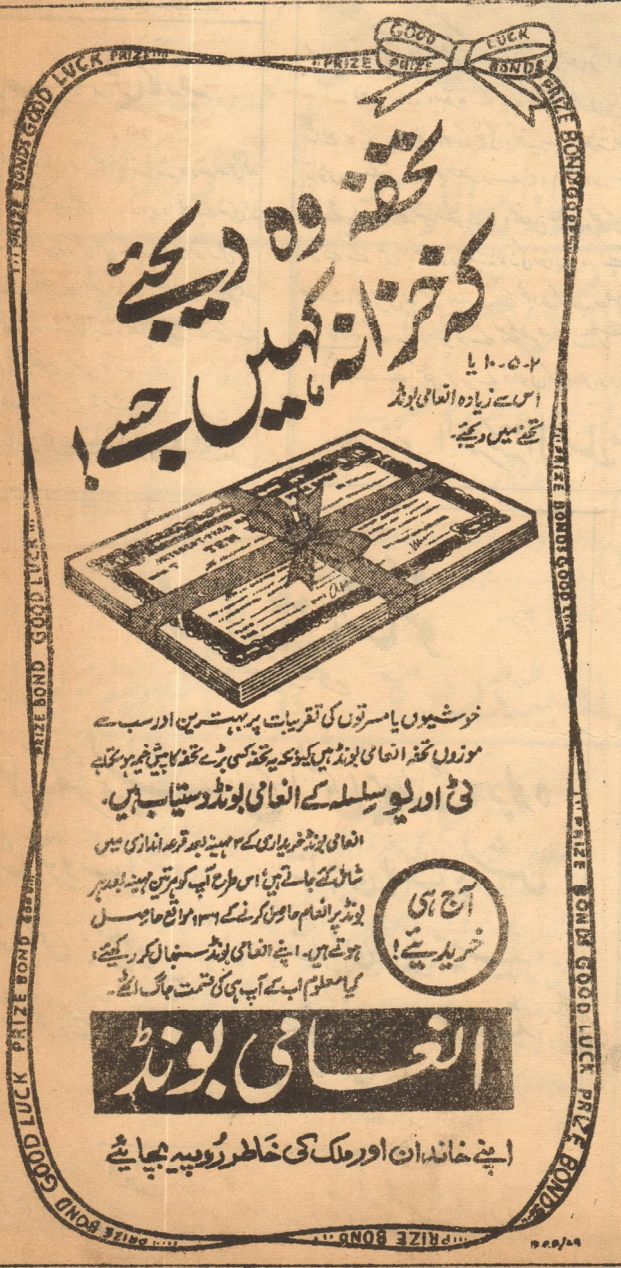 GOOD LUCK
PRIZE BONDS
GOOD LUCK PRIZE BONDS
تحفہ وہ دیجئے
کہ خزانہ کہیں جسے!
۲-۵-۱۰ یا
اس سے زیادہ انعامی بونڈ
تحفے میں دیجئے۔
خوشیوں یا مسرتوں کی تقریبات پر بہترین اور سب سے
موزوں تحفہ انعامی بونڈ ہیں کیونکہ یہ تحفہ کسی بڑے تحفہ کا پیش خیمہ ہو سکتا ہے
ٹی اور یو سلسلہ کے انعامی بونڈ دستیاب ہیں۔
انعامی بونڈ خریداری کے ۲ مہینہ بعد قرعہ اندازی میں
شامل کئے جاتے ہیں؛ اس طرح آپ کو ہر تین مہینہ بعد ہر
بونڈ پر انعام حاصل کرنے کے ۱۳۶ مواقع حاصل
ہوتے ہیں۔ اپنے انعامی بونڈ سنبھال کر رکھیئے،
کیا معلوم اب کے آپ ہی کی قسمت جاگ اٹھے۔
آج ہی
خریدیئے!
انعامی بونڈ
اپنے خاندان اور ملک کی خاطر روپیہ بچائیے